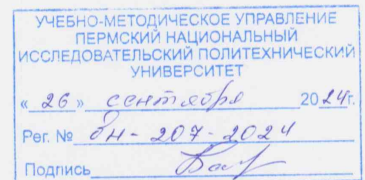 УЧЕБНО-МЕТОДИЧЕСКОЕ УПРАВЛЕНИЕ
ПЕРМСКИЙ НАЦИОНАЛЬНЫЙ
ИССЛЕДОВАТЕЛЬСКИЙ ПОЛИТЕХНИЧЕСКИЙ
УНИВЕРСИТЕТ
« 26 » сентября 2024г.
Рег. № вн-207-2024
Подпись